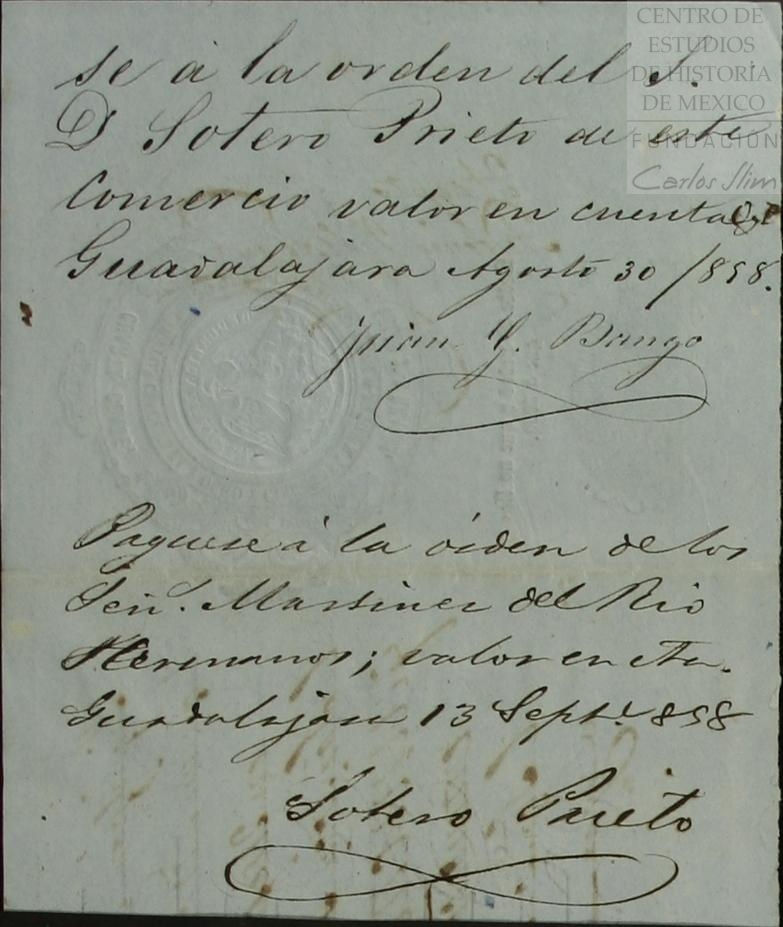 CENTRO DE
ESTUDIOS
DE HISTORIA
DE MEXICO
FUNDACIÓN
Carlos Slim
se á la orden del S.
D Sotero Prieto de este
Comercio valor en cuenta
Guadalajara Agosto 30 /858.
Juan G. Bango
Paguese á la órden de los
Señ. Martinez del Rio
Hermanos; valor en cta.
Guadalajara 13 Sept. 858
Sotero Prieto